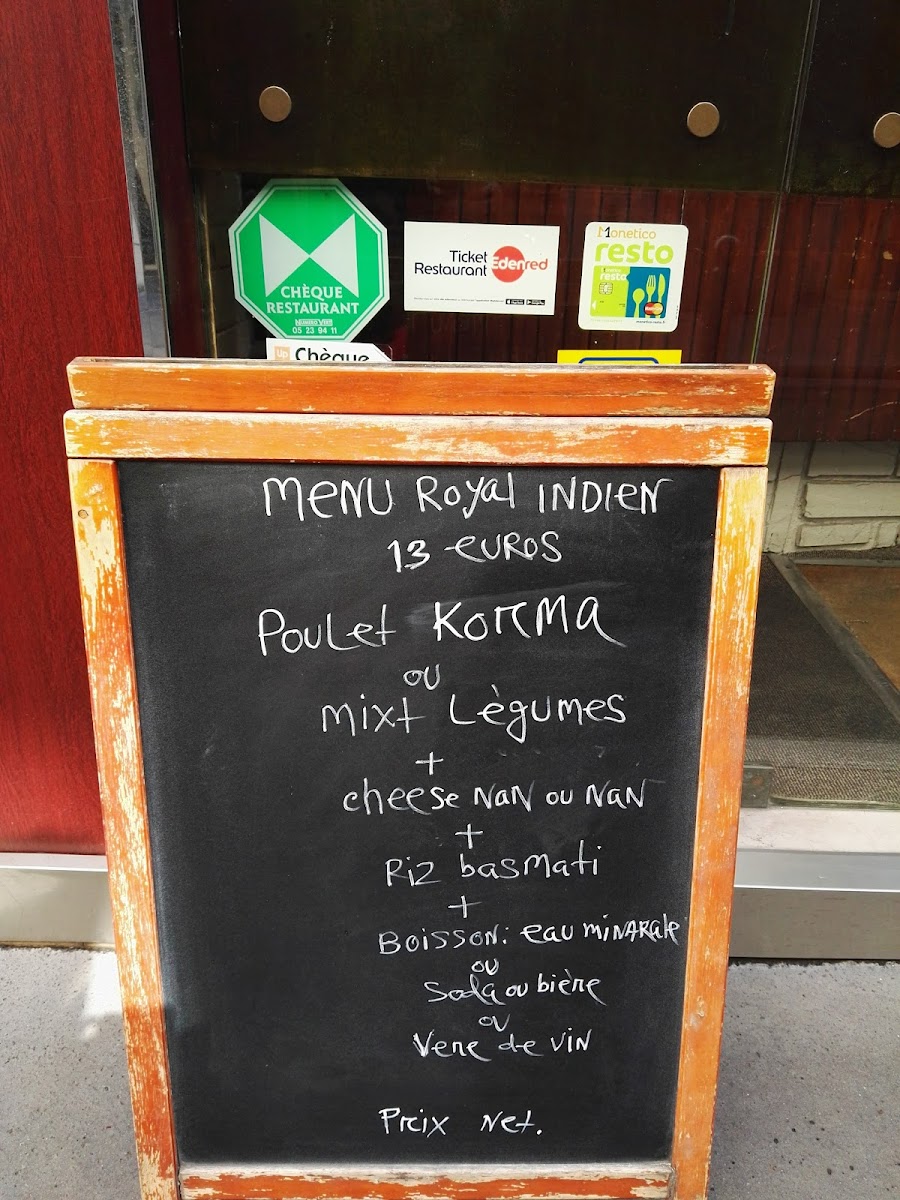 CHÈQUE
RESTAURANT
NUMERO VERT
05 23 94 11
Ticket
Restaurant
Edenred
Monetico
resto
resto
up Chèque
MENU Royal INDIEN
13 EUROS
Poulet Korma
ou
mixt Lègumes
+
cheese NaN ou NaN
+
Riz basmati
+
Boisson: eau minarale
ou
Soda ou bière
ou
Verre de vin
Prix Net.